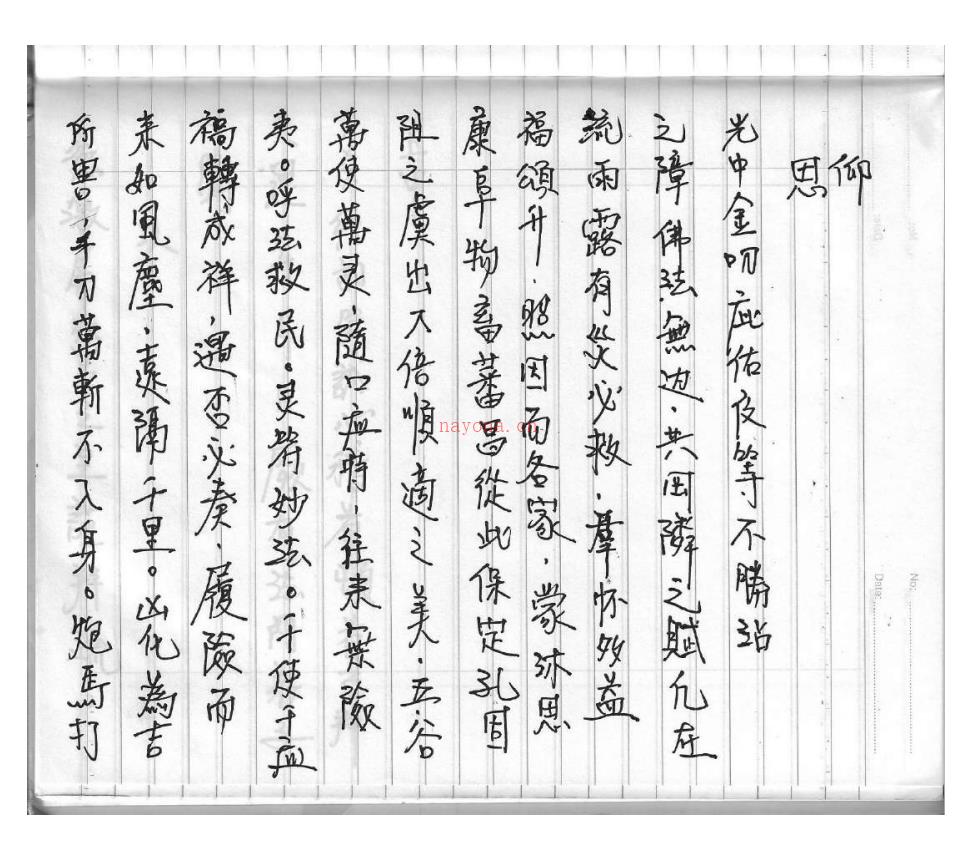 仰
恩
光中金叨庇佑俊等不勝站
之障佛法無边.共囯隣之賦凢在
統雨露有災必救.羣怀妙益
福頌升.照因而各家.蒙沐思
康阜物畜蕃昌從此保定孔固
阻之虞出入倍順適之美.五谷
萬使萬灵.隨口血時.往来無險
夷。呼法救民。灵符妙法。千使千血
禍轉成祥.遇否必泰.履險而
来如風塵.遠隔千里。凶化為吉
所里.手刀萬斬不入身。炮馬打
nayona.cn
No:
Date: